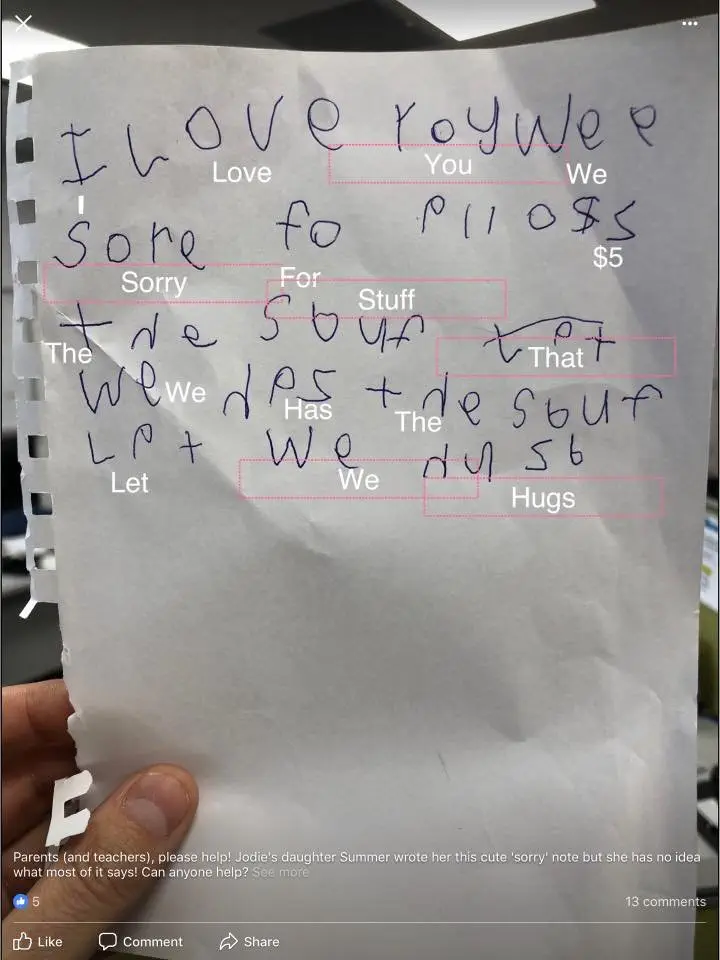 I LOVE YOyWee
Love You We
I
Sore fo Pllo$s
$5
Sorry For
Stuff
The
the Souf
That
We We Has The
Let We
Hugs
Parents (and teachers), please help! Jodie's daughter Summer wrote her this cute 'sorry' note but she has no idea
what most of it says! Can anyone help? See more
5 13 comments
Like Comment Share